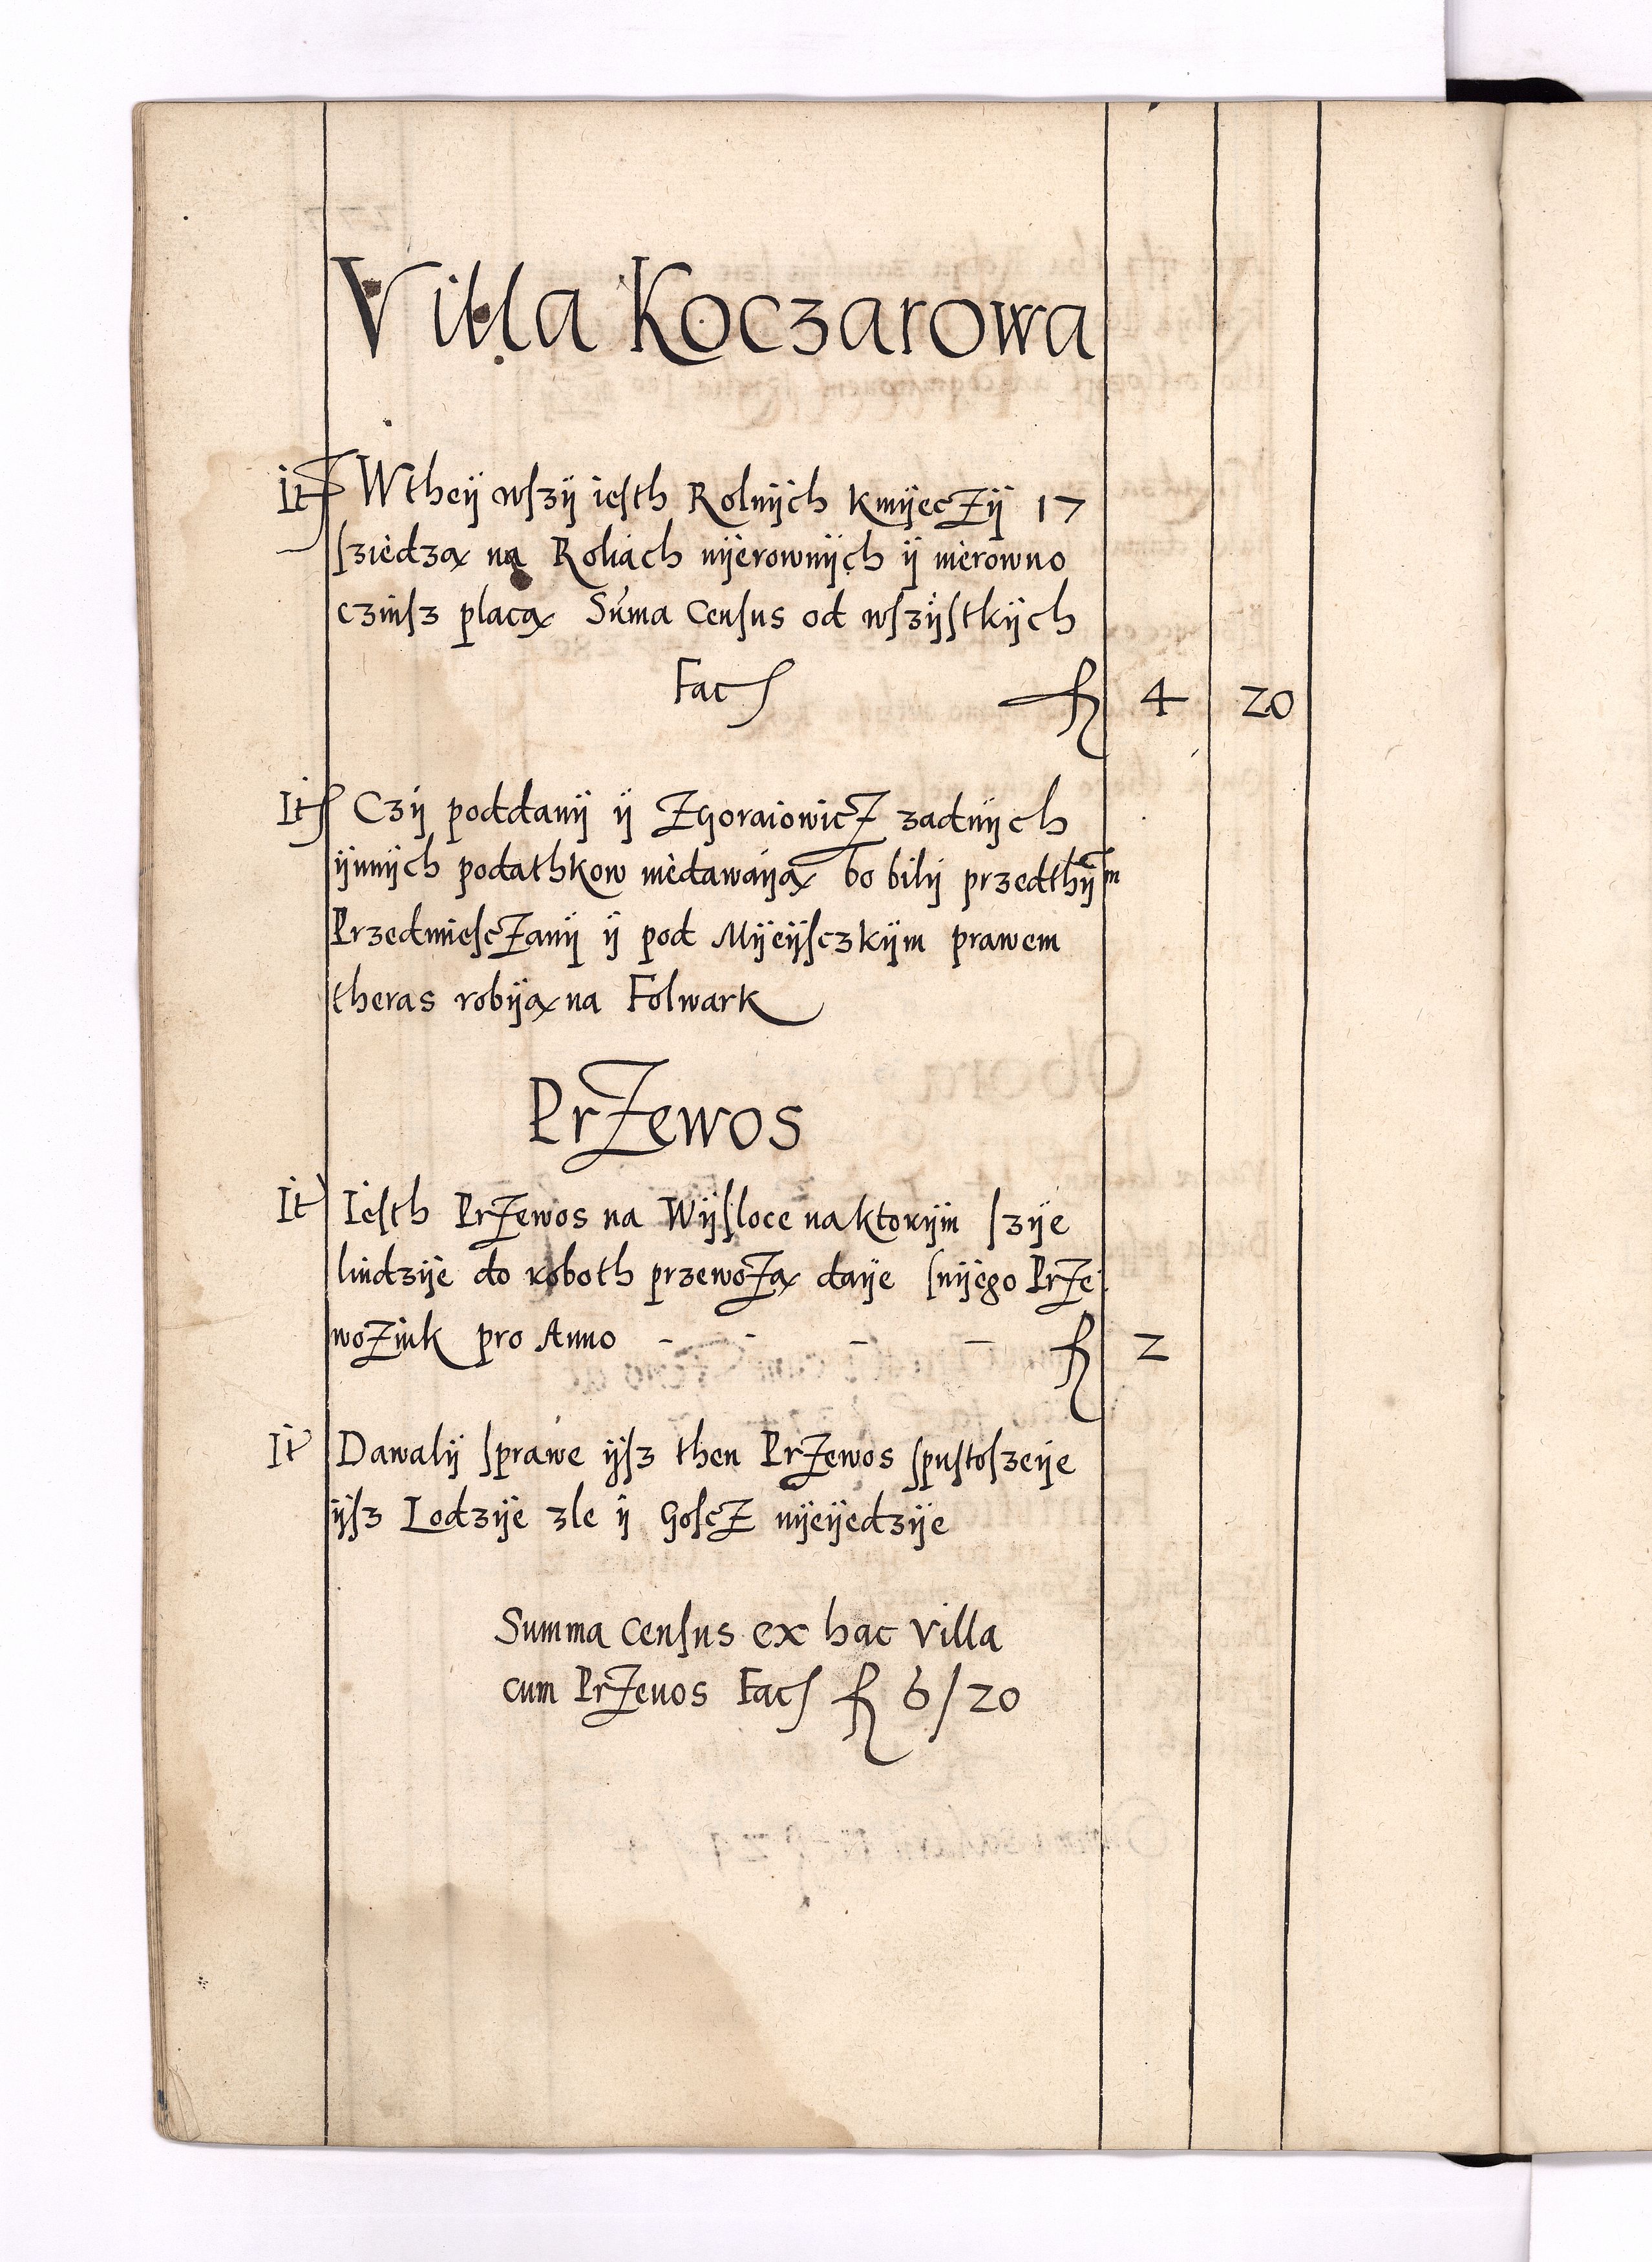 Villa Koczarowa
It Wtheÿ wſzÿ ieſth Rolnÿch kmÿeczÿ 17
ſziedzą na Roliach nÿerownÿch ÿ nierowno
czinſz placą Sum̄a Cenſus od wſzÿſtkÿch
Fac fl 4 20
It Czÿ poddanÿ ÿ Zgoraiowicz zadnÿch
ÿnnÿch podathkow niedawaÿą bo bilÿ przedthÿm
Przedmieſczanÿ ÿ pod Mÿeÿſczkÿm prawem
theras robÿą na Folwark
Przewos
It Ieſth Przewos na Wÿſloce na ktorÿm ſzÿe
liudzÿe do roboth przewozą daÿe ſnÿego Prze
woznik pro Anno - - - - fl 2
It Dawalÿ ſprawe ÿſz then Przewos ſpuſtoſzeÿe
ÿſz Lodzÿe zle ÿ Goſcz nÿeÿedzÿe
Summa cenſus ex hac villa
cum Przeuos Fac fl 6/20